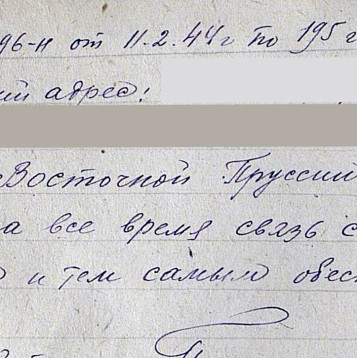 96-н от 11.2.44г по 195 г
ий адрес:
Восточной Пруссии
а все время связь с
и тем самым обес